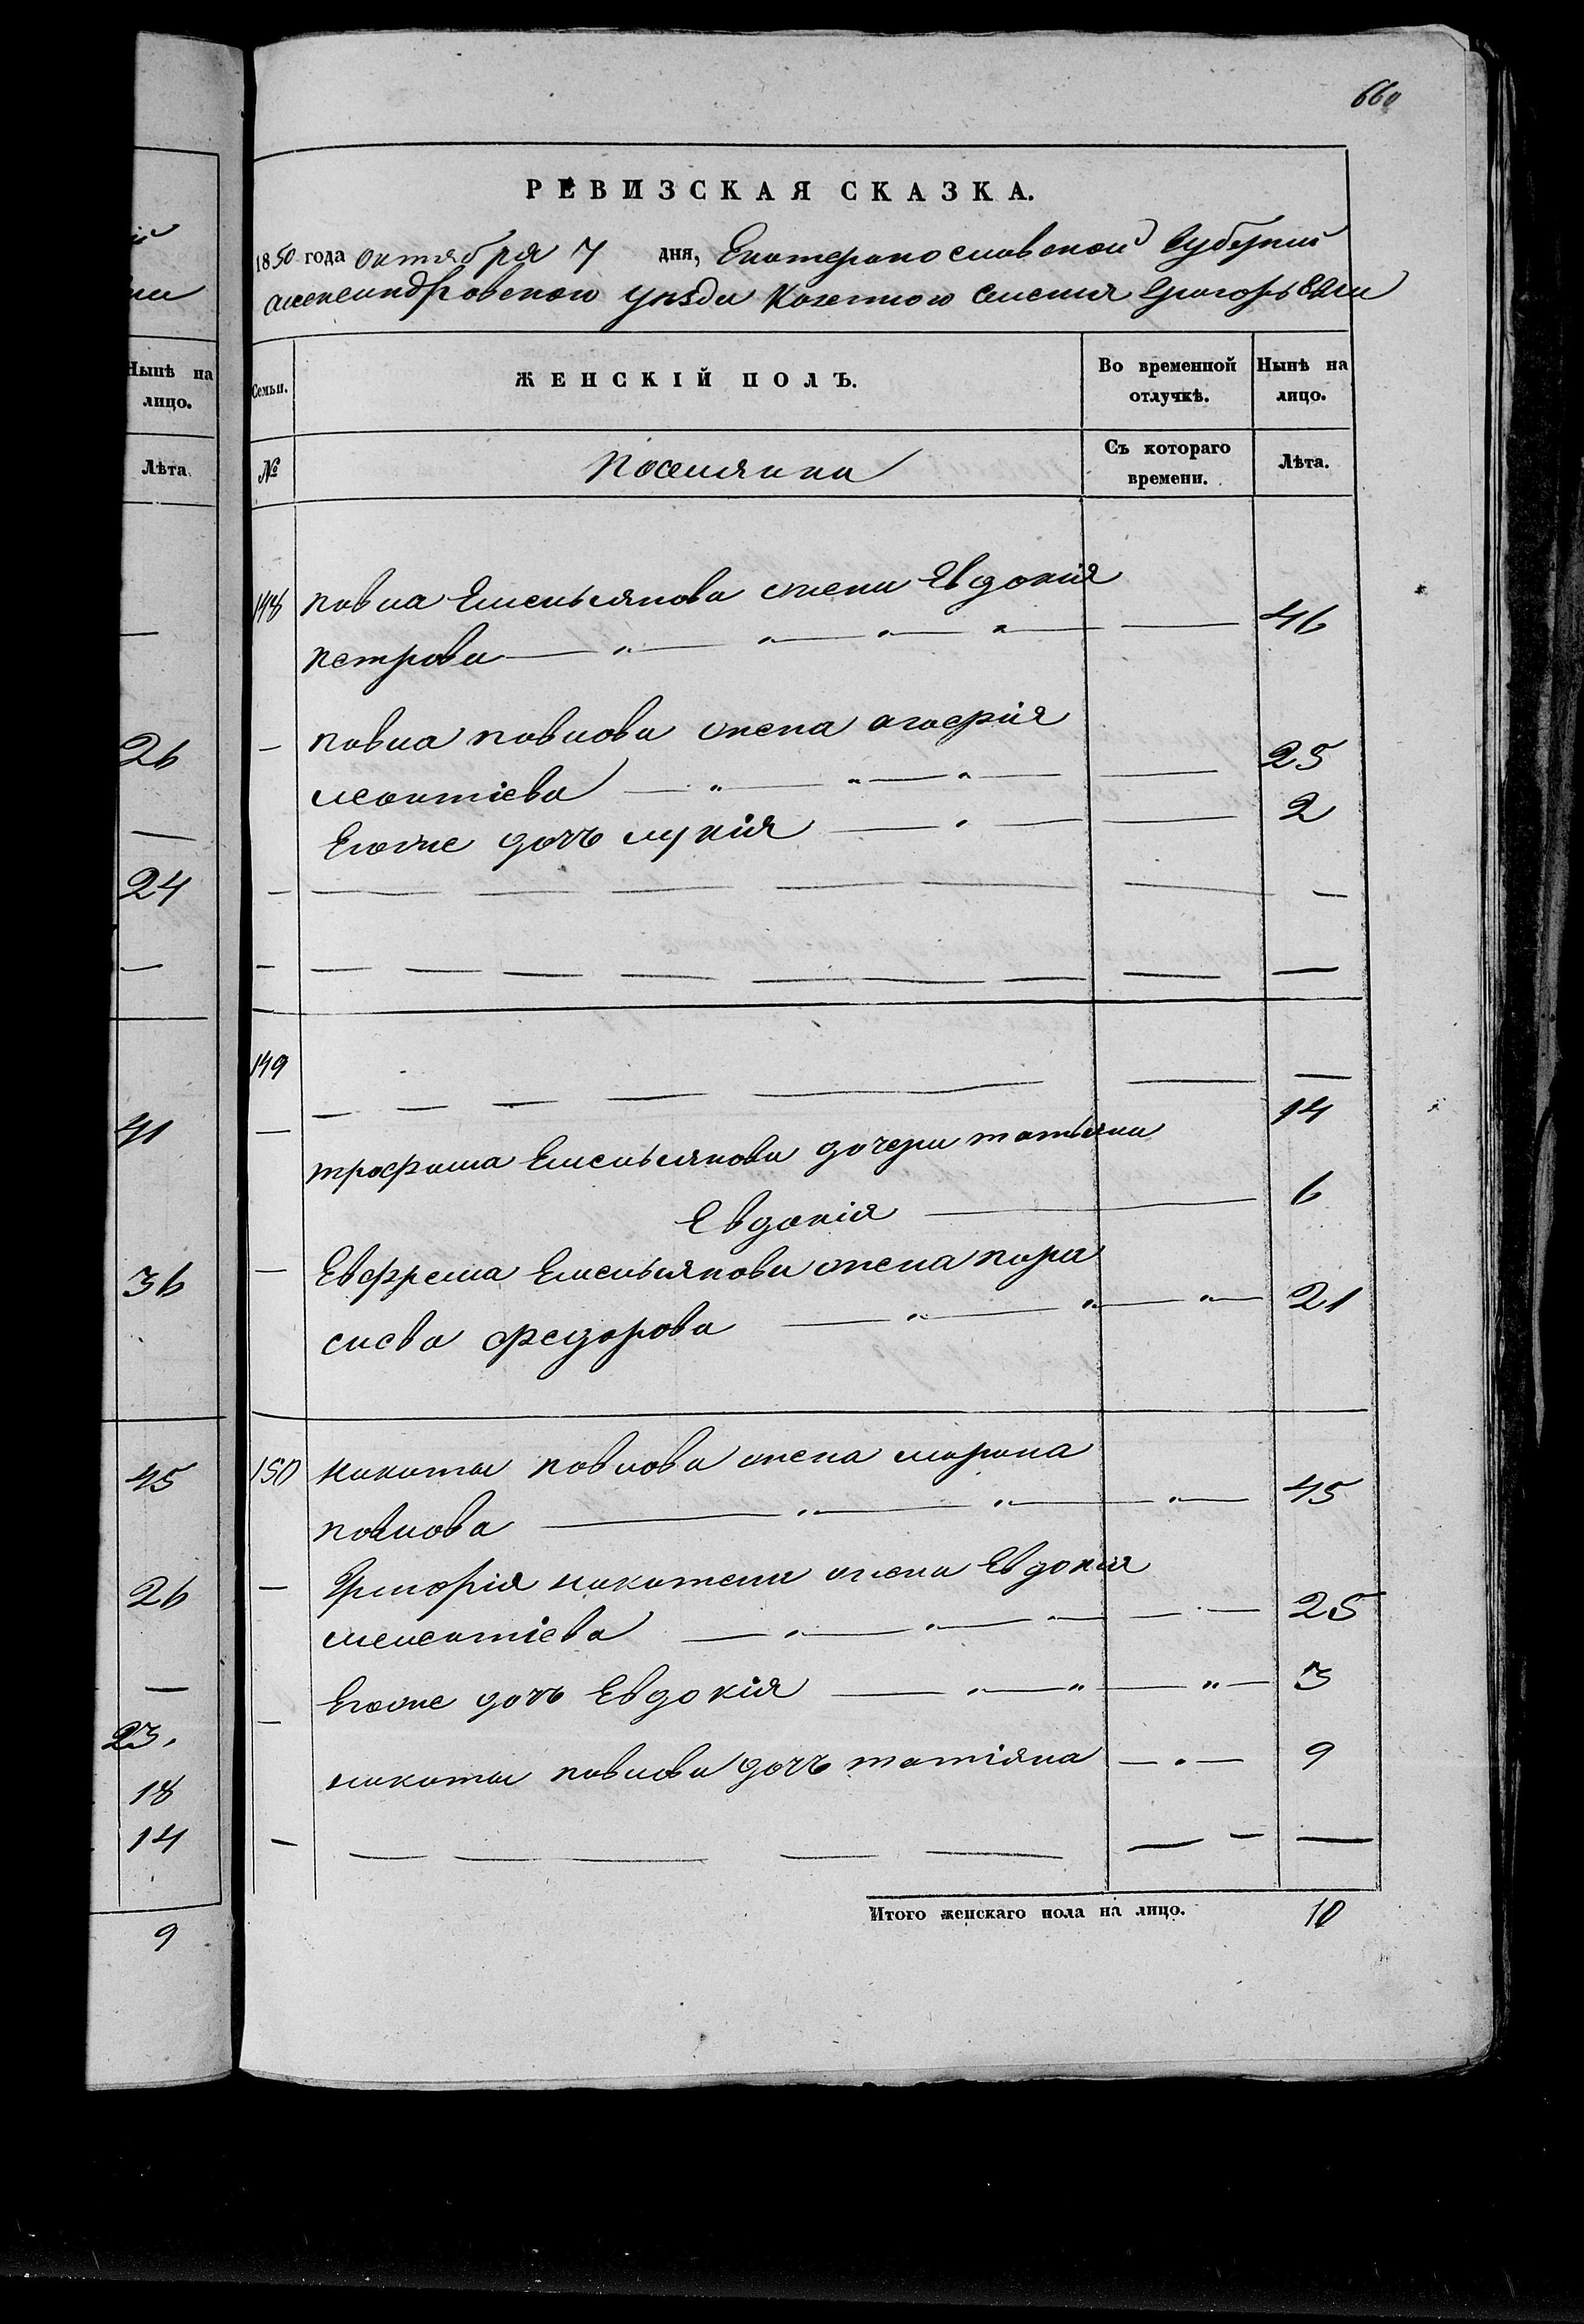 660
й
ни
Нынѣ на
лицо.
Лѣта.
—
26
—
24
—
41
36
45
26
—
23.
18
14
9
РЕВИЗСКАЯ СКАЗКА.
1850 года октября 7 дня, Екатеринославской Губерніи
александровского уѣзда Казенного Селенія Григорьевки
Семьи. ЖЕНСКІЙ ПОЛЪ. Во временной отлучкѣ. Нынѣ на лицо.
№ Поселянки Съ котораго времени. Лѣта.
148 павла Емельянова жена Евдокія
петрова — „ — „ — „ — „ — — 46
— павла павлова жена агафія
леонтіева — „ — „ — „ — — 25
Егоже дочь лукія — „ — — 2
— — — — — — — —
— — — — — — — — — —
149 — — — — — — —
— трофима Емельянова дочери татьяна 14
Евдокія — 6
— Евфрема Емельянова жена пара
скева федорова — „ — „ — „ — 21
150 никиты павлова жена марина
павлова — „ — „ — „ — 45
— Григорія никитина жена Евдокія
мелентіева — „ — „ — „ — — „ — 25
Егоже дочь Евдокія — „ — „ — „ — 3
— никиты павлова дочь татіяна — „ — 9
— — — — — — — —
Итого женскаго пола на лицо. 10